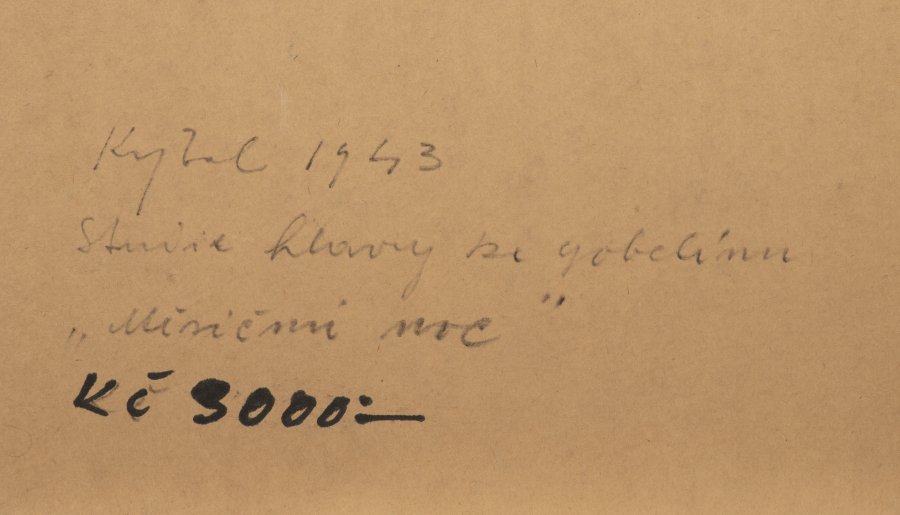 Kybal 1943
Studie hlavy ke gobelínu
„Měsíční noc"
Kč 3000:—